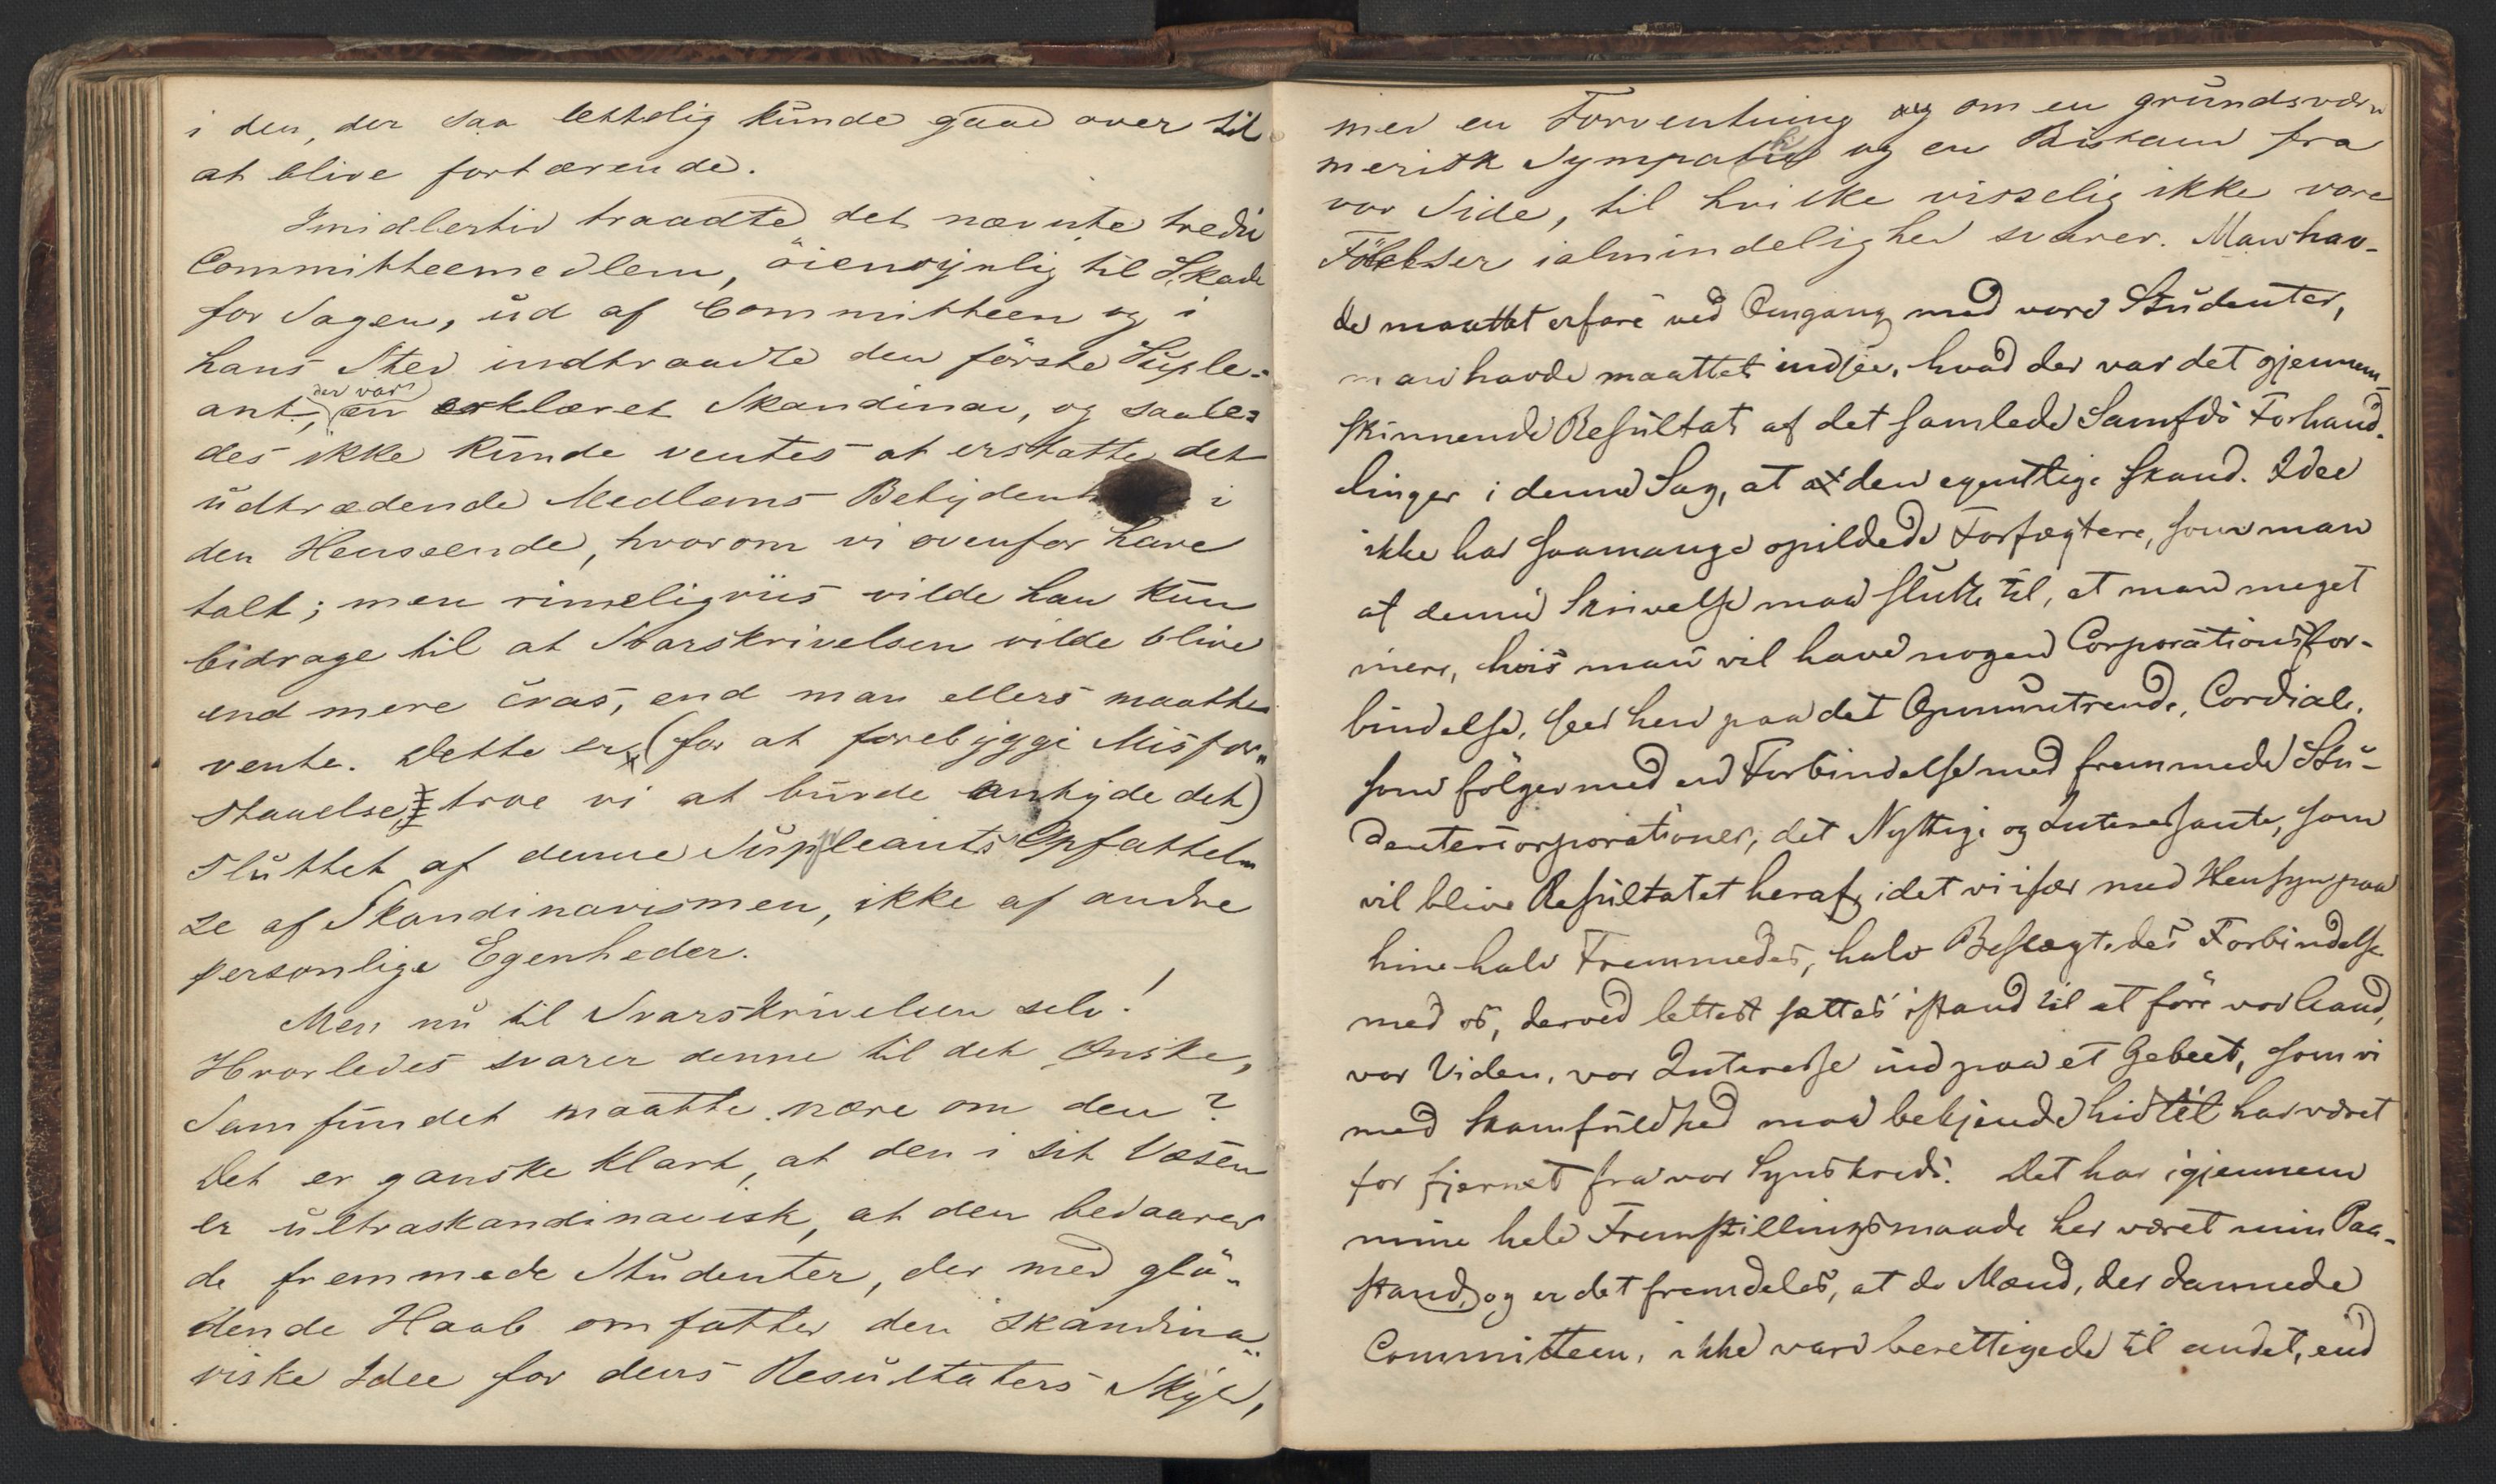 i den, der saa lettelig kunde gaae over til
at blive fortærende.
Imidlertid traadte det nævnte tredie
Committeemedlem, öiensynlig til Skade
for Sagen, ud af Committeen og i
hans Sted indtraadte den förste Suple-
der var
ant, en erklæret Skandinav, og saale-
des ikke kunde ventes at erstatte det
udtrædende Medlems i
den Henseende, hvorom vi ovenfor have
talt; men rimeligviis vilde han kun
bidrage til at Svarskrivelsen vilde blive
end mere cras, end man ellers maatte
vente. Dette er (for at forebygge Misfor-
staaelse, troe vi at burde antyde det)
sluttet af denne Suppleants Opfattel-
se af Skandinavismen, ikke af andre
personlige Egenheder.
Men nu til Svarskrivelsen selv!
Hvorledes svarer denne til det Ønske,
Samfundet maatte nære om den?
Det er ganske klart, at den i sit Væsen
er ultraskandinavisk, at den bedaarer
de fremmede Studenter, der med glö-
dende Haab omfatter den skandina-
viske Idee for dens Resultaters Skyld,
med en Forventning om en
merisk Sympathi og en Bistand fra
vor Side, til hvilke visselig ikke vore
Fölelser ialmindelighed svarer. Man hav-
de maattet erfare ved Omgang med vore Studenter,
man havde maattet indsee, hvad der var det gjennem-
skinnende Resultat af det samlede Samfds Forhand-
linger i denne Sag, at den egentlige skand. Idee
ikke har saamange opildede Forfægtere, som man
af denne Skrivelse maa slutte til, at man meget
mere, hvis man vil have nogen Corporationsfor-
bindelse, seer hen paa det Opmuntrende, Cordiale,
som fölger med en Forbindelse med fremmede Stu-
dentercorporationer, det Nyttige og Interessante, som
vil blive Resultatet heraf, idet vi især med Hensyn paa
hine halv Fremmedes, halv Beslægtedes Forbindelse
med os, derved lettest sættes istand til at före vor Aand,
vor Viden, vor Interesse ind paa et Gebeet, som vi
med Skamfuldhed maa bekjende hidtil har været
for fjernet fra vor Synskreds. Det har igjennem
mine hele Fremstillingsmaade her været min Paa-
stand, og er det fremdeles, at de Mænd, der dannede
Committeen, ikke vare berettigede til andet, end